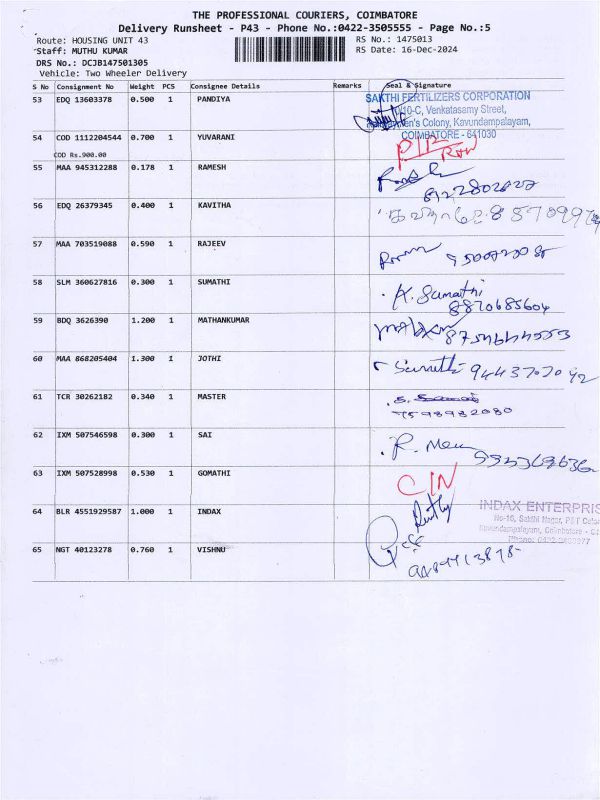 THE PROFESSIONAL COURIERS, COIMBATORE
Delivery Runsheet - P43 - Phone No.:0422-3505555 - Page No.:5
Route: HOUSING UNIT 43 RS No.: 1475013
Staff: MUTHU KUMAR RS Date: 16-Dec-2024
DRS No.: DCJB147501305
Vehicle: Two Wheeler Delivery
S No Consignment No Weight PCS Consignee Details Remarks Seal & Signature
53 EDQ 13603378 0.500 1 PANDIYA
SAKTHI FERTILIZERS CORPORATION
10-C, Venkatasamy Street,
Colony, Kavundampalayam,
COIMBATORE - 641030
54 COD 1112204544 0.700 1 YUVARANI
COD Rs.900.00
55 MAA 945312288 0.178 1 RAMESH
56 EDQ 26379345 0.400 1 KAVITHA
57 MAA 703519088 0.590 1 RAJEEV
58 SLM 360627816 0.300 1 SUMATHI
K. Sumathi
8870685604
59 BDQ 3626390 1.200 1 MATHANKUMAR
60 MAA 868205404 1.300 1 JOTHI
61 TCR 30262182 0.340 1 MASTER
7598982080
62 IXM 507546598 0.300 1 SAI
63 IXM 507528998 0.530 1 GOMATHI
C/N
64 BLR 4551929587 1.000 1 INDAX
INDAX ENTERPRIS
No-16, Sakthi Nagar, P&T Colo
Kavundampalayam, Coimbatore -
65 NGT 40123278 0.760 1 VISHNU